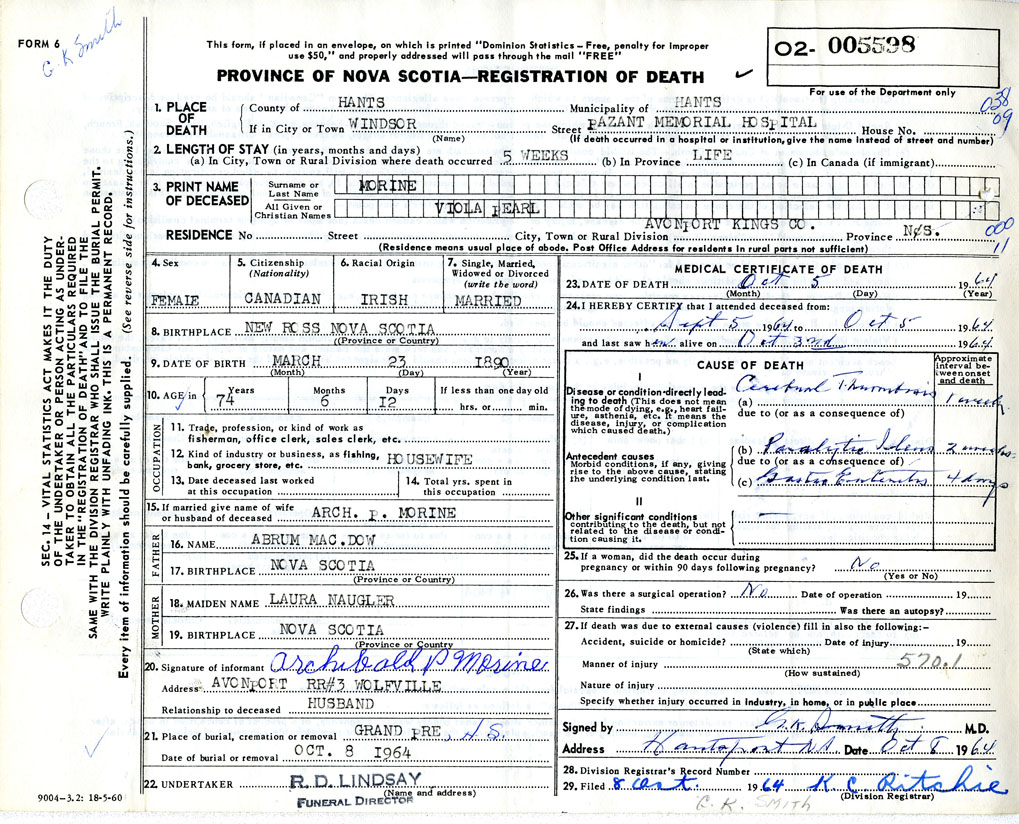 FORM 6
G. K Smith
This form, if placed in an envelope, on which is printed "Dominion Statistics – Free, penalty for improper
use $50," and properly addressed will pass through the mail "FREE"
PROVINCE OF NOVA SCOTIA—REGISTRATION OF DEATH ✓
02- 005598
For use of the Department only
038
09
1. PLACE OF DEATH
County of HANTS Municipality of HANTS
If in City or Town WINDSOR (Name) Street PAZANT MEMORIAL HOSPITAL House No.
(If death occurred in a hospital or institution, give the name instead of street and number)
2. LENGTH OF STAY (in years, months and days)
(a) In City, Town or Rural Division where death occurred 5 WEEKS (b) In Province LIFE (c) In Canada (if immigrant)
3. PRINT NAME OF DECEASED
Surname or Last Name MORINE
All Given or Christian Names VIOLA PEARL
RESIDENCE No Street City, Town or Rural Division AVONPORT KINGS CO. Province N.S.
000
11
(Residence means usual place of abode. Post Office Address for residents in rural parts not sufficient)
4. Sex
FEMALE
5. Citizenship (Nationality)
CANADIAN
6. Racial Origin
IRISH
7. Single, Married, Widowed or Divorced (write the word)
MARRIED
8. BIRTHPLACE NEW ROSS NOVA SCOTIA
(Province or County)
9. DATE OF BIRTH MARCH 23 1890
(Month) (Day) (Year)
10. AGE in Years Months Days If less than one day old
74 6 12 hrs. or min.
OCCUPATION
11. Trade, profession, or kind of work as
fisherman, office clerk, sales clerk, etc.
12. Kind of industry or business, as fishing,
bank, grocery store, etc. HOUSEWIFE
13. Date deceased last worked
at this occupation
14. Total yrs. spent in
this occupation
15. If married give name of wife
or husband of deceased ARCH. P. MORINE
FATHER
16. NAME ABRUM MAC.DOW
17. BIRTHPLACE NOVA SCOTIA
(Province or Country)
MOTHER
18. MAIDEN NAME LAURA NAUGLER
19. BIRTHPLACE NOVA SCOTIA
(Province or Country
20. Signature of informant Archibald P Morine
Address AVONPORT RR#3 WOLFVILLE
Relationship to deceased HUSBAND
21. Place of burial, cremation or removal GRAND PRE, N S.
Date of burial or removal OCT. 8 1964
22. UNDERTAKER R.D. LINDSAY
(Name and address)
FUNERAL DIRECTOR
MEDICAL CERTIFICATE OF DEATH
23. DATE OF DEATH Oct 5 1964
(Month) (Day) (Year)
24. I HEREBY CERTIFY that I attended deceased from:
Sept 5 1964 to Oct 5 1964
and last saw her alive on Oct 3rd 1964
CAUSE OF DEATH
Approximate interval between onset and death
I
Disease or condition directly leading to death (This does not mean
the mode of dying, e.g., heart failure, asthenia, etc. It means the
disease, injury, or complication
which caused death.)
(a) Cerebral Thrombosis 1 week
due to (or as a consequence of)
Antecedent causes
Morbid conditions, if any, giving
rise to the above cause, stating
the underlying condition last.
(b) Paralytic Ileus 2 weeks
due to (or as a consequence of)
(c) Gastro Enteritis 4 days
II
Other significant conditions
contributing to the death, but not
related to the disease or condition causing it.
—
25. If a woman, did the death occur during
pregnancy or within 90 days following pregnancy? No
(Yes or No)
26. Was there a surgical operation? No Date of operation 19
State findings Was there an autopsy?
27. If death was due to external causes (violence) fill in also the following:-
Accident, suicide or homicide? Date of injury 19
(State which)
Manner of injury 570.1
(How sustained)
Nature of injury
Specify whether injury occurred in industry, in home, or in public place
Signed by G. K. Smith M.D.
Address Hantsport N.S. Date Oct 8 1964
28. Division Registrar's Record Number
29. Filed 8 Oct. 1964 K C Ritchie
(Division Registrar)
G. K. SMITH
SEC. 14 – VITAL STATISTICS ACT MAKES IT THE DUTY
OF THE UNDERTAKER OR PERSON ACTING AS UNDER-
TAKER TO OBTAIN ALL THE PARTICULARS REQUIRED
IN THE "REGISTRATION OF DEATH" AND TO FILE THE
SAME WITH THE DIVISION REGISTRAR WHO SHALL ISSUE THE BURIAL PERMIT.
WRITE PLAINLY WITH UNFADING INK. THIS IS A PERMANENT RECORD.
Every item of information should be carefully supplied. (See reverse side for instructions.)
9004–3.2: 18-5-60